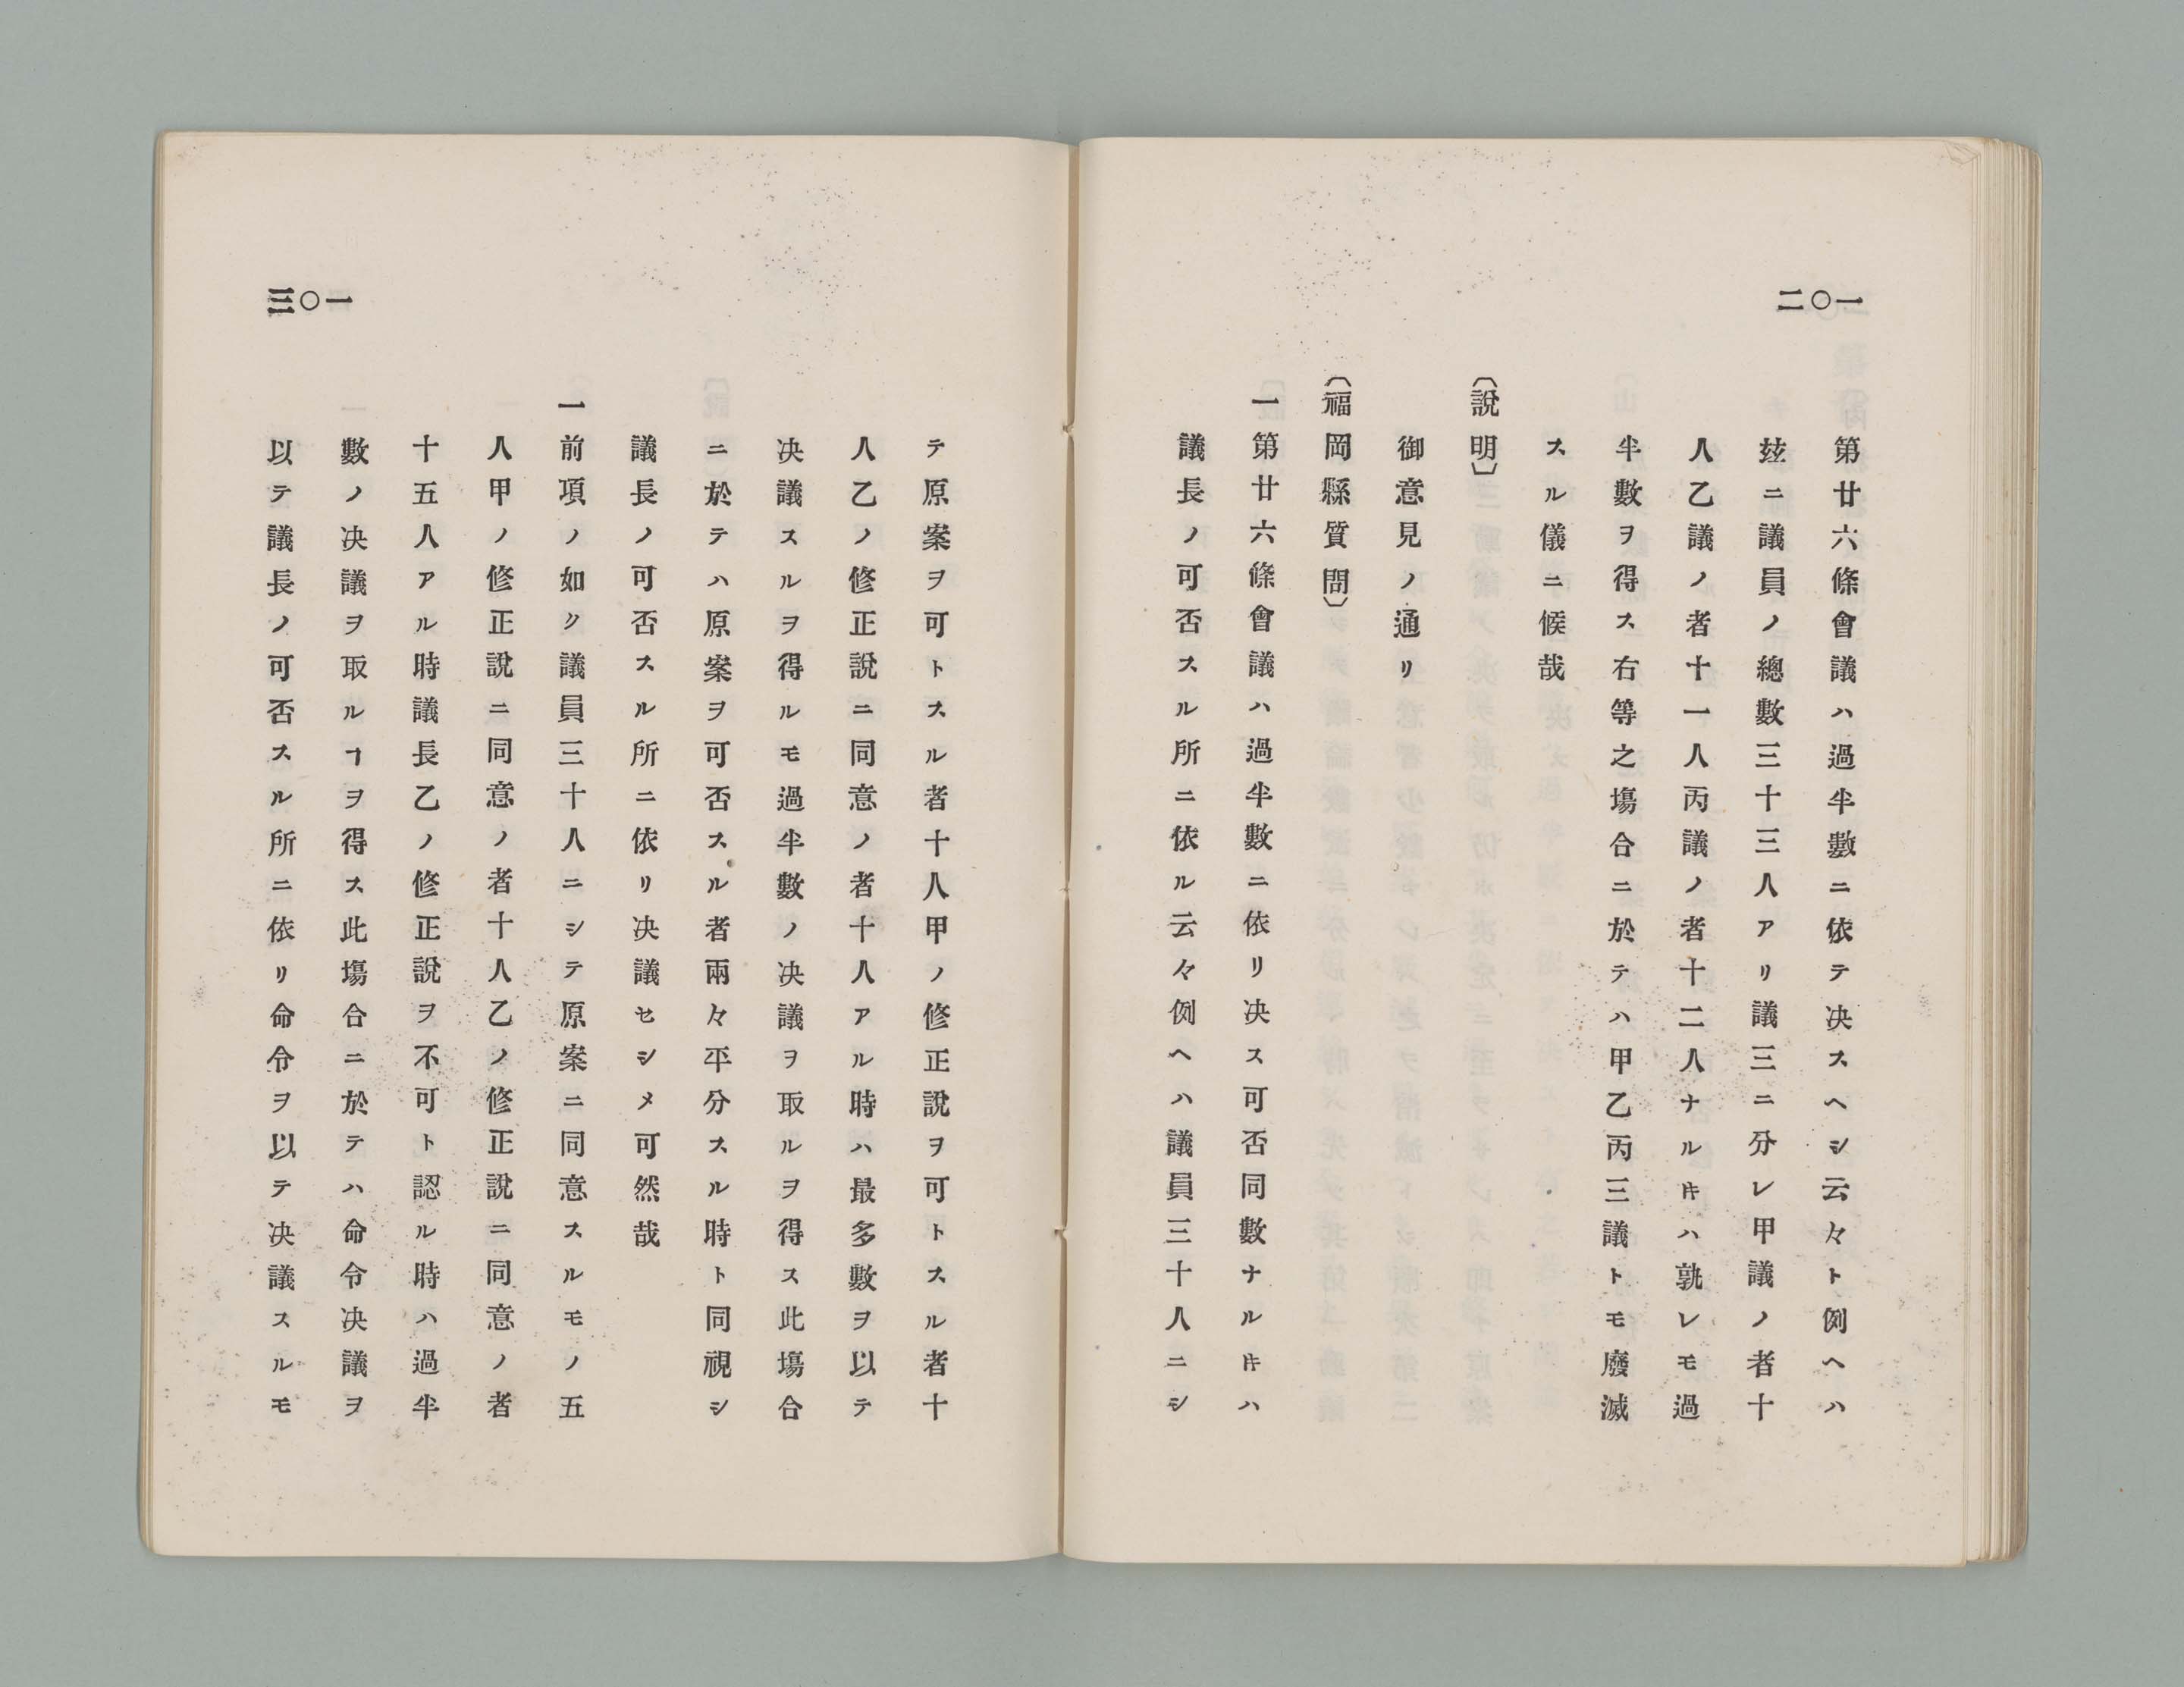 二〇一
第廿六條會議ハ過半數ニ依テ决スヘシ云々ト例ヘハ
玆ニ議員ノ總數三十三人アリ議三ニ分レ甲議ノ者十
人乙議ノ者十一人丙議ノ者十二人ナルキハ孰レモ過
半數ヲ得ス右等之塲合ニ於テハ甲乙丙三議トモ廢滅
スル儀ニ候哉
〔說明〕
御意見ノ通リ
〔福岡縣質問〕
一第廿六條會議ハ過半數ニ依リ决ス可否同數ナルキハ
議長ノ可否スル所ニ依ル云々例ヘハ議員三十人ニシ
三〇一
テ原案ヲ可トスル者十人甲ノ修正說ヲ可トスル者十
人乙ノ修正說ニ同意ノ者十人アル時ハ最多數ヲ以テ
决議スルヲ得ルモ過半數ノ决議ヲ取ルヲ得ス此塲合
ニ於テハ原案ヲ可否スル者兩々平分スル時ト同視シ
議長ノ可否スル所ニ依リ决議セシメ可然哉
一前項ノ如ク議員三十人ニシテ原案ニ同意スルモノ五
人甲ノ修正說ニ同意ノ者十人乙ノ修正說ニ同意ノ者
十五人アル時議長乙ノ修正說ヲ不可ト認ル時ハ過半
數ノ决議ヲ取ルヿヲ得ス此塲合ニ於テハ命令决議ヲ
以テ議長ノ可否スル所ニ依リ命令ヲ以テ决議スルモ